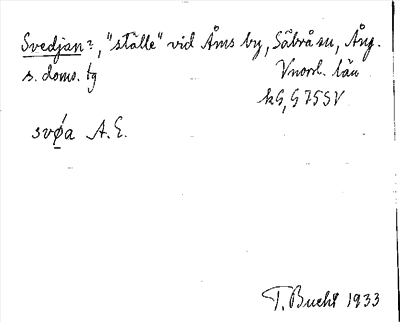 Svedjan?, "ställe" vid Åms by, Säbrå sn, Ång.
s. doms. tg Vnorrl. län
kG, G 75 SV
svǿ̣a A.E.
T. Bucht 1933